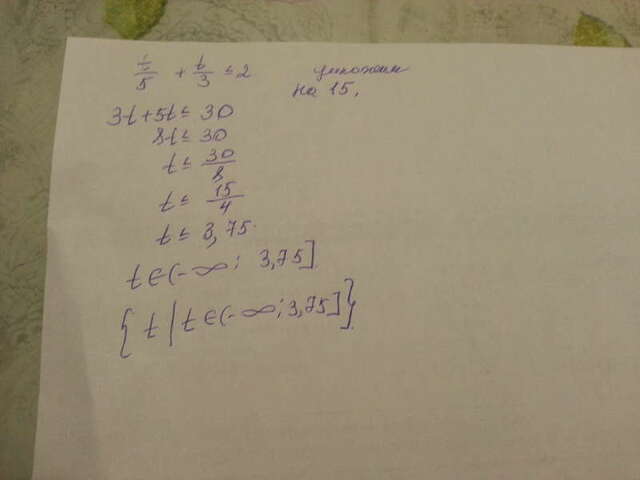 t/5 + t/3 ≤ 2 умножим
на 15,
3t+5t ≤ 30
8t ≤ 30
t ≤ 30/8
t ≤ 15/4
t ≤ 3,75.
t ∈ (-∞; 3,75]
{t | t ∈ (-∞; 3,75]}